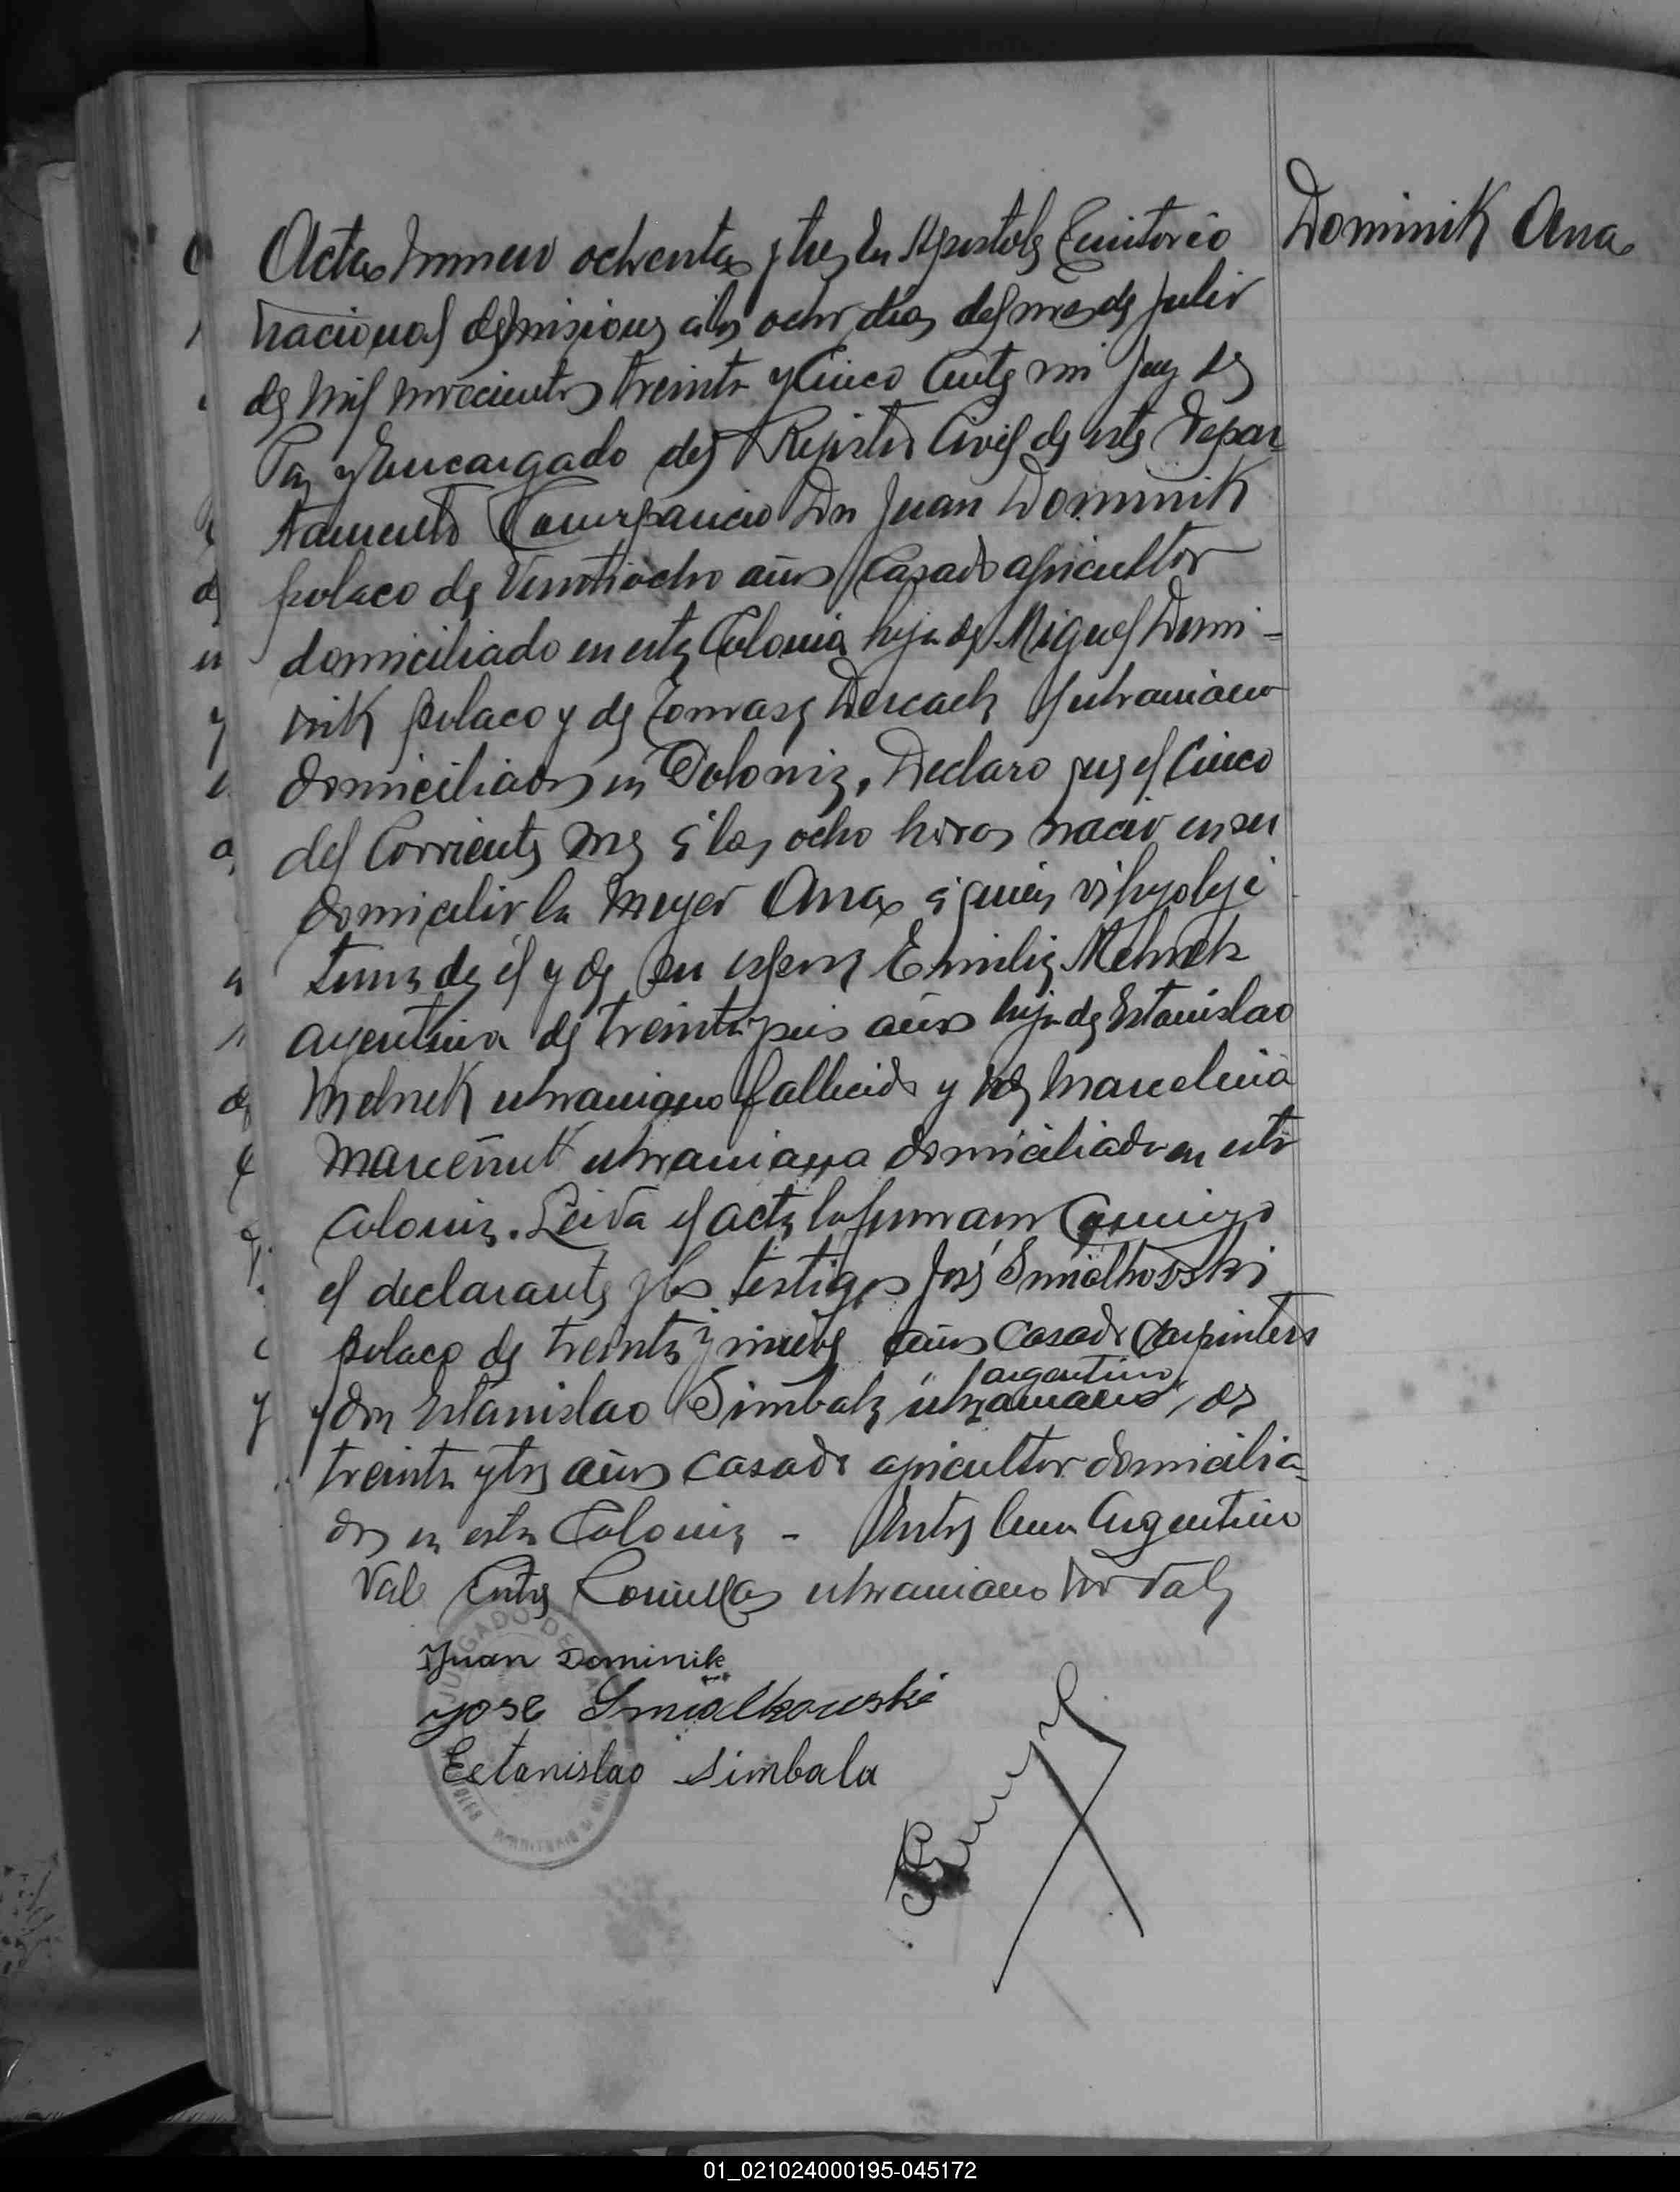 Dominik Ana
Acta Numero ochenta y tres En Apostoles Territorio
Nacional de Misiones a los ocho dias del mes de Julio
de Mil novecientos treinta y Cinco Ante mi Juez de
Paz y Encargado del Registro Civil de este Depar-
tamento Comparecio Dn Juan Dominik
polaco de Veintiocho años Casado agricultor
domiciliado en esta Colonia hijo de Miguel Domi-
nik polaco y de Tomasa Dercach ukraniano
domiciliados en Colonia, Declaro que el Cinco
del Corriente mes á las ocho horas nacio en su
domicilio la mujer Ana á quien vi hija legi
tima de él y de su esposa Emilia Melnek
argentina de treinta y seis años hija de Estanislao
Melnek ukraniano fallecido y de Marcelina
ukraniana domiciliada en esta
Colonia. Leida el acta la firmaron Conmigo
el declarante y los testigos José Smialkowski
polaco de treinta y nueve años Casado Carpintero
argentino
y don Estanislao Simbala ukraniano, de
treinta y tres años casado agricultor domicilia-
dos en esta Colonia - Entre linea Argentino
Vale Entre Comillas ukraniano No Vale
Juan Dominik
Jose Smialkowski
Estanislao Simbala
JUZGADO DE PAZ
01_021024000195-045172